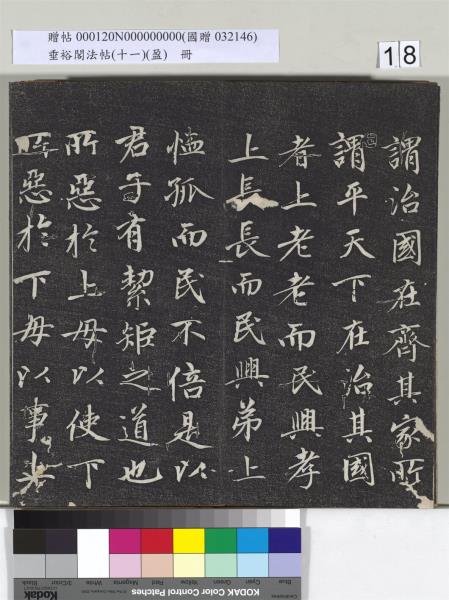 贈帖 000120N000000000(國贈 032146)
垂裕閣法帖(十一)(盈) 冊
18
謂治國在齊其家所
謂平天下在治其國
者上老老而民興孝
上長長而民興弟上
恤孤而民不倍是以
君子有絜矩之道也
所惡於上毋以使下
所惡於下毋以事上
Blue
Cyan
Green
Yellow
Red
Magenta
White
3/Color
Black
KODAK Color Control Patches